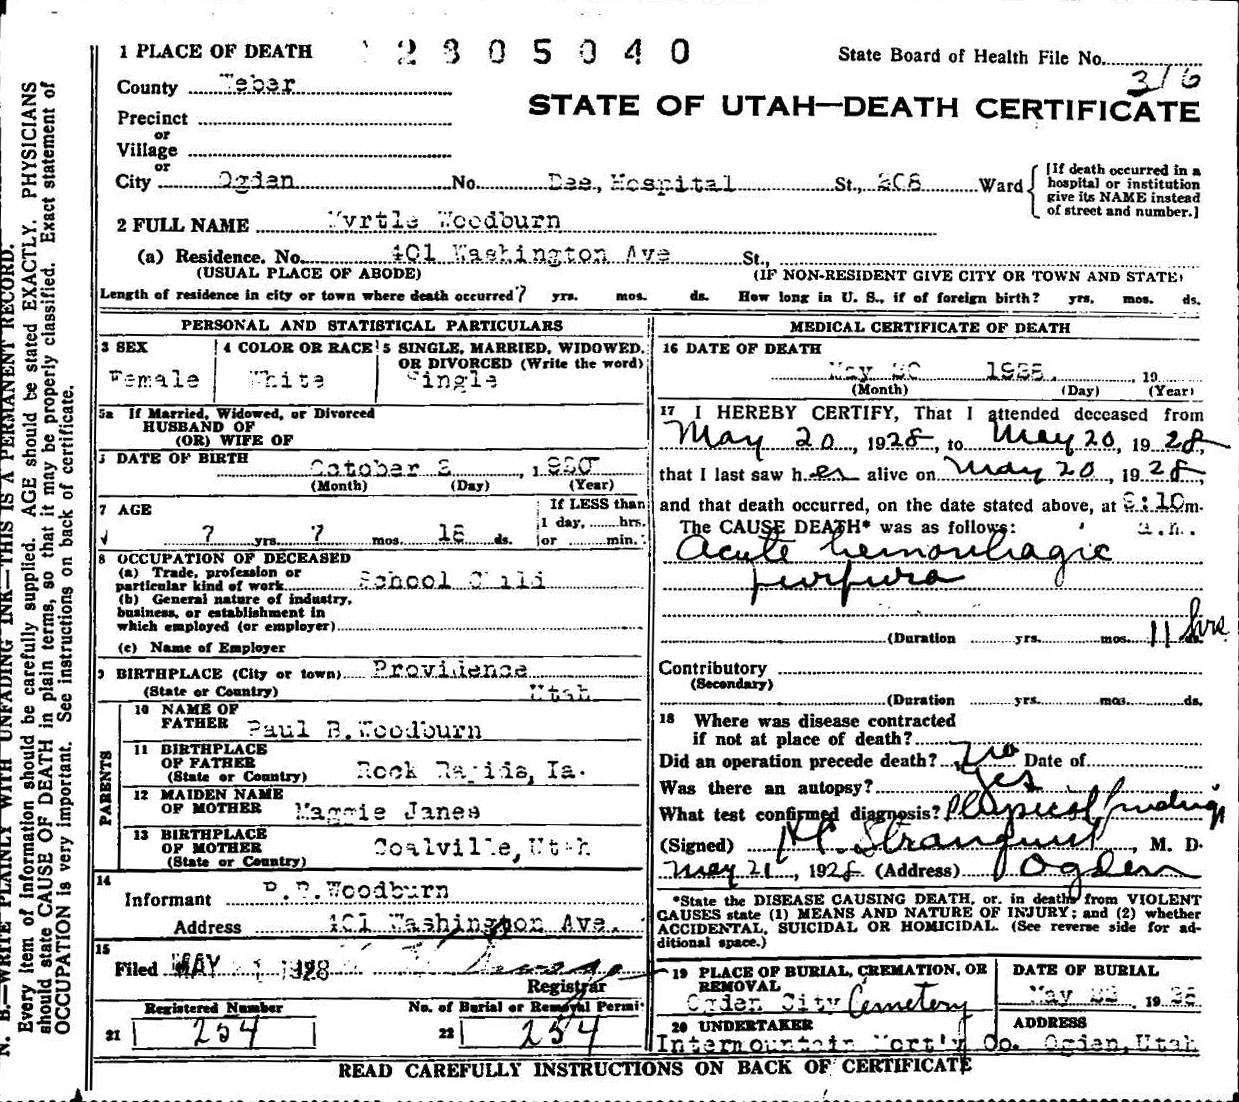 1 PLACE OF DEATH
2805040
State Board of Health File No.
316
County Weber
STATE OF UTAH—DEATH CERTIFICATE
Precinct
or
Village
or
City Ogden No. Dee, Hospital St., 208 Ward
[If death occurred in a
hospital or institution
give its NAME instead
of street and number.]
2 FULL NAME Myrtle Woodburn
(a) Residence. No. 401 Washington Ave St.,
(USUAL PLACE OF ABODE) (IF NON-RESIDENT GIVE CITY OR TOWN AND STATE)
Length of residence in city or town where death occurred 7 yrs. mos. ds. How long in U. S., if of foreign birth? yrs. mos. ds.
PERSONAL AND STATISTICAL PARTICULARS
3 SEX
Female
4 COLOR OR RACE
White
5 SINGLE, MARRIED, WIDOWED,
OR DIVORCED (Write the word)
Single
5a If Married, Widowed, or Divorced
HUSBAND OF
(OR) WIFE OF
DATE OF BIRTH
October 2, 1920
(Month) (Day) (Year)
7 AGE
7 yrs. 7 mos. 18 ds.
If LESS than
1 day, hrs.
or min.
8 OCCUPATION OF DECEASED
(a) Trade, profession or
particular kind of work School Child
(b) General nature of industry,
business, or establishment in
which employed (or employer)
(c) Name of Employer
9 BIRTHPLACE (City or town) Providence
(State or Country) Utah
PARENTS
10 NAME OF
FATHER Paul B. Woodburn
11 BIRTHPLACE
OF FATHER
(State or Country) Rock Rapids, Ia.
12 MAIDEN NAME
OF MOTHER Maggie Janes
13 BIRTHPLACE
OF MOTHER
(State or Country) Coalville, Utah
14
Informant P.B. Woodburn
Address 401 Washington Ave.
15
Filed MAY 21 1928
Registrar
Registered Number
21 254
No. of Burial or Removal Permit
22 254
MEDICAL CERTIFICATE OF DEATH
16 DATE OF DEATH
May 20 1928, 19
(Month) (Day) (Year)
17 I HEREBY CERTIFY, That I attended deceased from
May 20, 1928, to May 20, 1928,
that I last saw her alive on May 20, 1928,
and that death occurred, on the date stated above, at :10m.
The CAUSE DEATH* was as follows: a.m.
Acute hemorrhagic
purpura
(Duration yrs. mos. 11 hrs ds.
Contributory
(Secondary)
(Duration yrs. mos. ds.
18 Where was disease contracted
if not at place of death?
Did an operation precede death? No Date of
Was there an autopsy? Yes
What test confirmed diagnosis? Physical findings
(Signed) Stranquist, M. D.
May 21, 1928 (Address) Ogden
*State the DISEASE CAUSING DEATH, or, in deaths from VIOLENT
CAUSES state (1) MEANS AND NATURE OF INJURY; and (2) whether
ACCIDENTAL, SUICIDAL OR HOMICIDAL. (See reverse side for ad-
ditional space.)
19 PLACE OF BURIAL, CREMATION, OR
REMOVAL
Ogden City Cemetery
DATE OF BURIAL
May 22, 1928
20 UNDERTAKER
Intermountain Mort'y Co.
ADDRESS
Ogden, Utah
READ CAREFULLY INSTRUCTIONS ON BACK OF CERTIFICATE
N. B.—WRITE PLAINLY WITH UNFADING INK—THIS IS A PERMANENT RECORD.
Every item of information should be carefully supplied. AGE should be stated EXACTLY. PHYSICIANS
should state CAUSE OF DEATH in plain terms, so that it may be properly classified. Exact statement of
OCCUPATION is very important. See instructions on back of certificate.